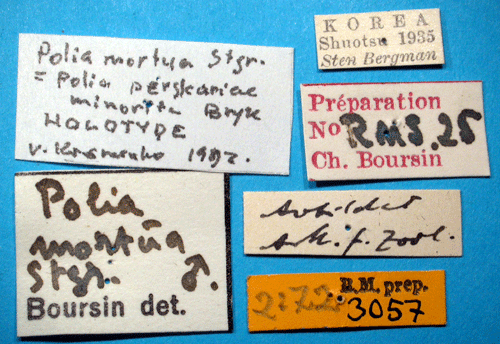 Polia mortua Stgr.
= Polia persicariae
minorita Bryk
HOLOTYPE
v. Kononenko 1992.
KOREA
Shuotsu 1935
Sten Bergman
Préparation
No RMS.25
Ch. Boursin
Polia
mortua
Stgr. ♂.
Boursin det.
Ark. f. Zool.
R.M. prep.
3057